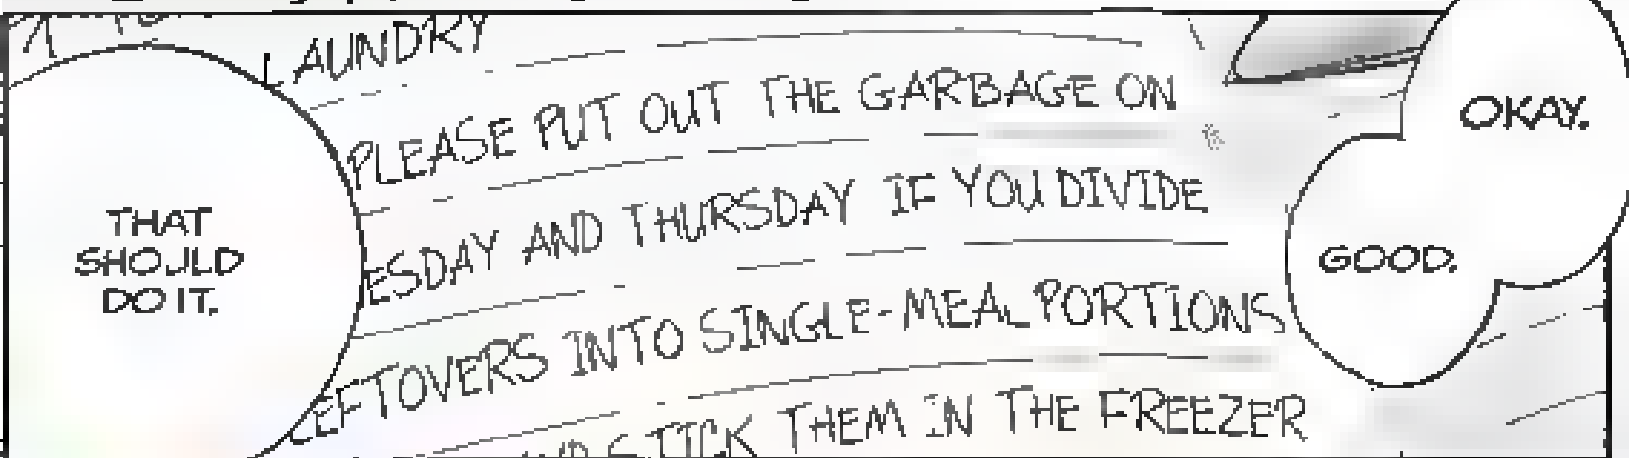 OKAY.
GOOD.
LAUNDRY
PLEASE PUT OUT THE GARBAGE ON
ESDAY AND THURSDAY IF YOU DIVIDE
LEFTOVERS INTO SINGLE-MEAL PORTIONS
STICK THEM IN THE FREEZER
THAT
SHOULD
DO IT.